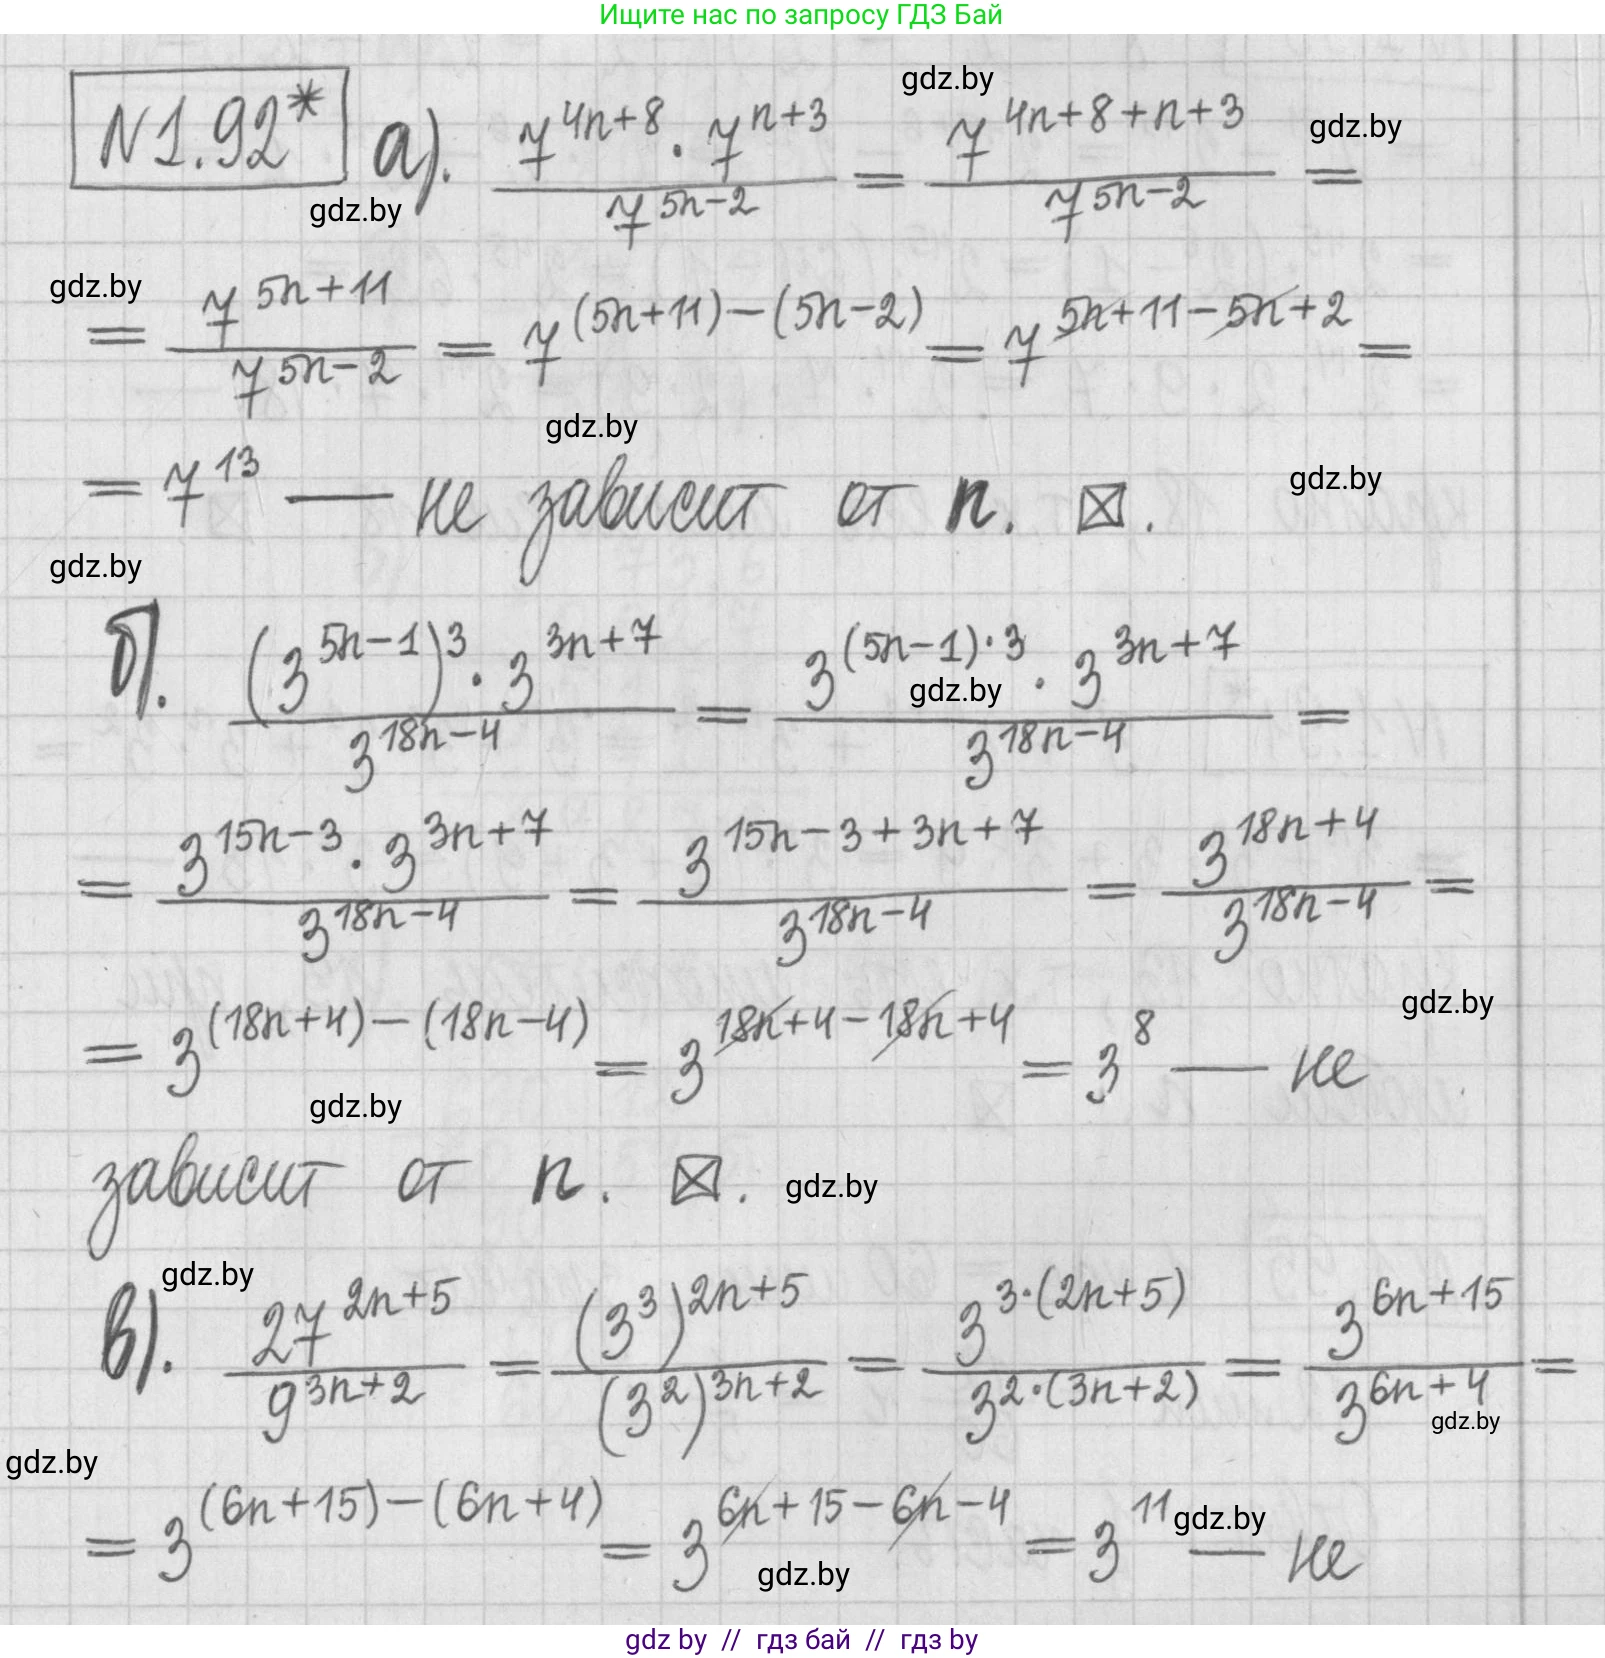 Ищите нас по запросу ГДЗ Бай
gdz.by
№1.92* а). (7^(4n+8) · 7^(n+3)) / 7^(5n−2) = 7^(4n+8+n+3) / 7^(5n−2) =
gdz.by
gdz.by
gdz.by
= 7^(5n+11) / 7^(5n−2) = 7^((5n+11)−(5n−2)) = 7^(5n+11−5n+2) =
gdz.by
= 7^13 — не зависит от n. ⊠.
gdz.by
gdz.by
б). ((3^(5n−1))^3 · 3^(3n+7)) / 3^(18n−4) = (3^((5n−1)·3) · 3^(3n+7)) / 3^(18n−4) =
gdz.by
= (3^(15n−3) · 3^(3n+7)) / 3^(18n−4) = 3^(15n−3+3n+7) / 3^(18n−4) = 3^(18n+4) / 3^(18n−4) =
gdz.by
= 3^((18n+4)−(18n−4)) = 3^(18n+4−18n+4) = 3^8 — не
gdz.by
зависит от n. ⊠.
gdz.by
gdz.by
в). 27^(2n+5) / 9^(3n+2) = (3^3)^(2n+5) / (3^2)^(3n+2) = 3^(3·(2n+5)) / 3^(2·(3n+2)) = 3^(6n+15) / 3^(6n+4) =
gdz.by
gdz.by
= 3^((6n+15)−(6n+4)) = 3^(6n+15−6n−4) = 3^11 — не
gdz.by
gdz.by
gdz by // гдз бай // гдз by